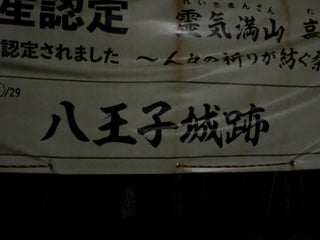 産認定
れいきまんざん
霊気満山
認定されました
〜人々の祈りが紡ぐ桑
/29
八王子城跡